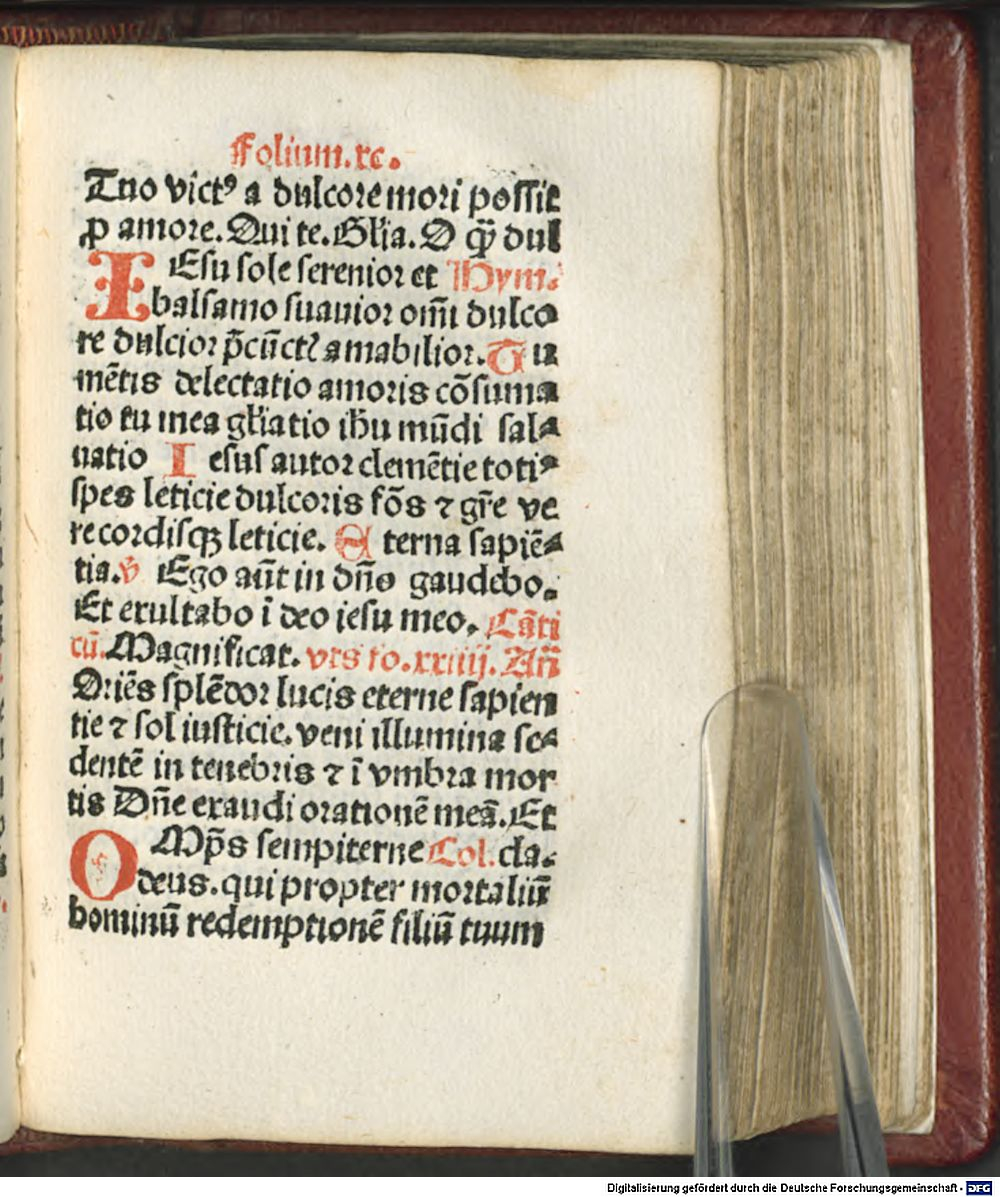 Folium.xc.
Tuo victꝰ a dulcore mori possit
ꝓ amore. Qui te. Glia. O ꝙ̃ dul
IEsu sole serenior et Hym.
balsamo suauior om̄i dulco
re dulcior p̄cūctꝭ amabilior. Tu
mētis delectatio amoris cōsuma
tio tu mea gl̄iatio ih̄u mūdi sal⸗
uatio Iesus autor clemētie toti⸗
spes leticie dulcoris fōs ⁊ gr̄e ve
re cordisqꝫ leticie. Eterna sapiē⸗
tia. ℣ Ego aūt in dn̄o gaudebo.
Et exultabo ī deo iesu meo. Cāti
cū. Magnificat. vts fo. xxiiij. An̄
Oriēs splēdor lucis eterne sapien
tie ⁊ sol iusticie. veni illumina se⸗
dentē in tenebris ⁊ ī vmbra mor
tis Dn̄e exaudi orationē meā. Et
OMp̄s sempiterne Col. cle.
deus. qui propter mortaliū
hominū redemptionē filiū tuum
Digitalisierung gefördert durch die Deutsche Forschungsgemeinschaft - DFG